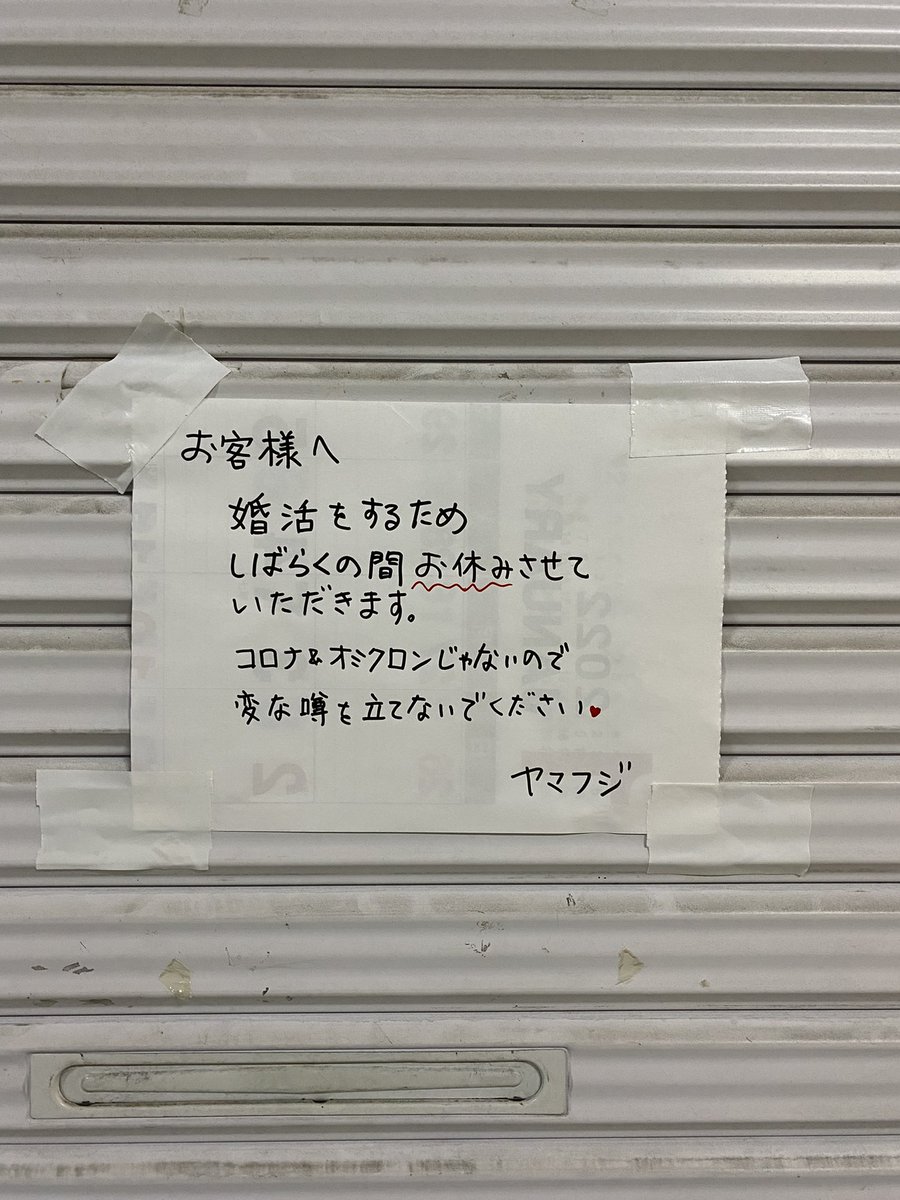 お客様へ
婚活をするため
しばらくの間お休みさせて
いただきます。
コロナ&オミクロンじゃないので
変な噂を立てないでください♥
ヤマフジ